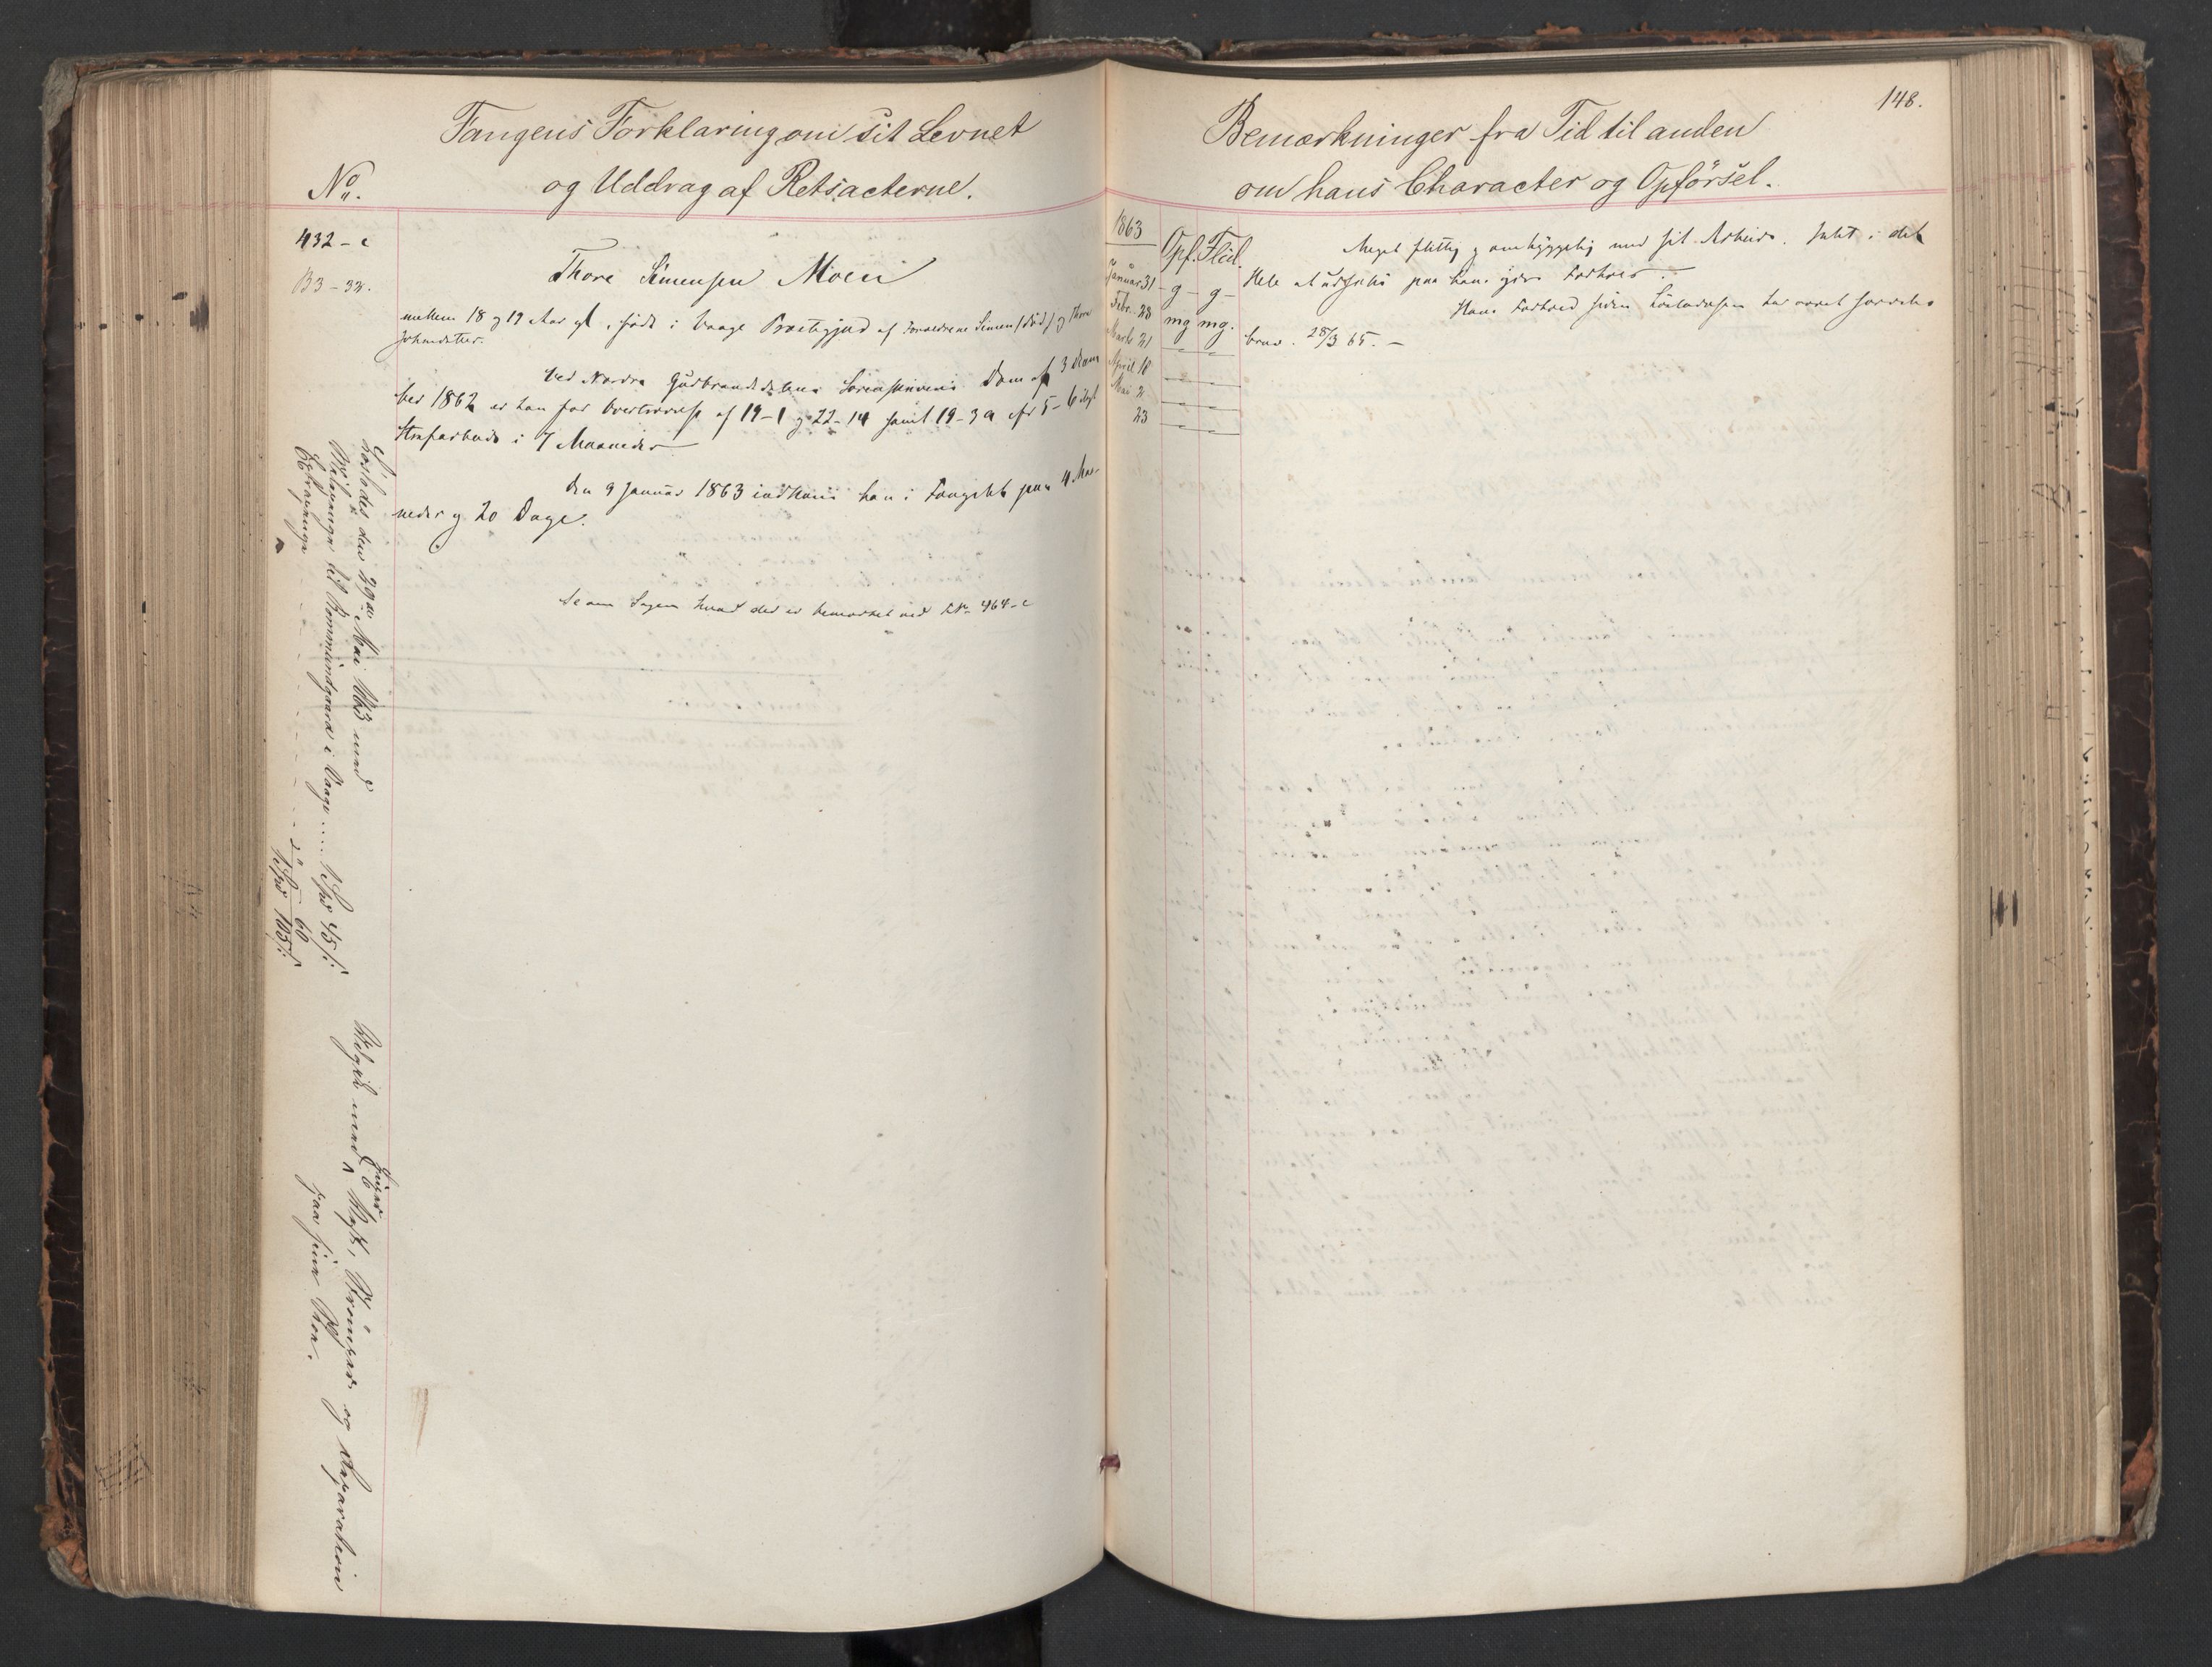 Fangens Forklaring om sit Levnet
og Uddrag af Retsacterne.
No.
432-c
B3-33.
Thore Simensen Moen
mellem 18 og 19 Aar gl., født i Vaage Præstegjæld af Forældrene Simen (død) og Thore
Johnsdatter.
Ved Nordre Gudbrandsdalens Sorenskriveris Dom af 3 Decem
ber 1862 er han for Overtrædelse af 19-1 og 22-14 samt 19-3a cfr 5-6 dømt
Strafarbeide i 7 Maaneder
Den 9 Januar 1863 indkom han i Fængslet paa 4 Maa-
neder og 20 Dage.
Se om Sagen hvad der er bemærket ved FN: 464-c
Løslodes den 29de Mai 1863 med
Reisepenge til Kommandgaard i Vaage .... 1 Spd 45 s:
Extrapenge - - - - - - - - do " - 60
1 Spd 105 s:
Udgik med Vest, Strømper og Reparation
paa sine Skoe.
148.
Bemærkninger fra Tid til anden
om hans Character og Opførsel.
1863
Opf. Flid.
Januar 31 - g - g -
Febr. 28 mg mg.
Marts 21 — —
April 18 — —
Mai 2 — —
23 — —
Meget flittig og omhyggelig med sit Arbeide. Intet i det
Hele at udsætte paa hans øvr. Forhold.
Hans Forhold siden Løsladelsen har været særdeles
brav. 28/3 65. -